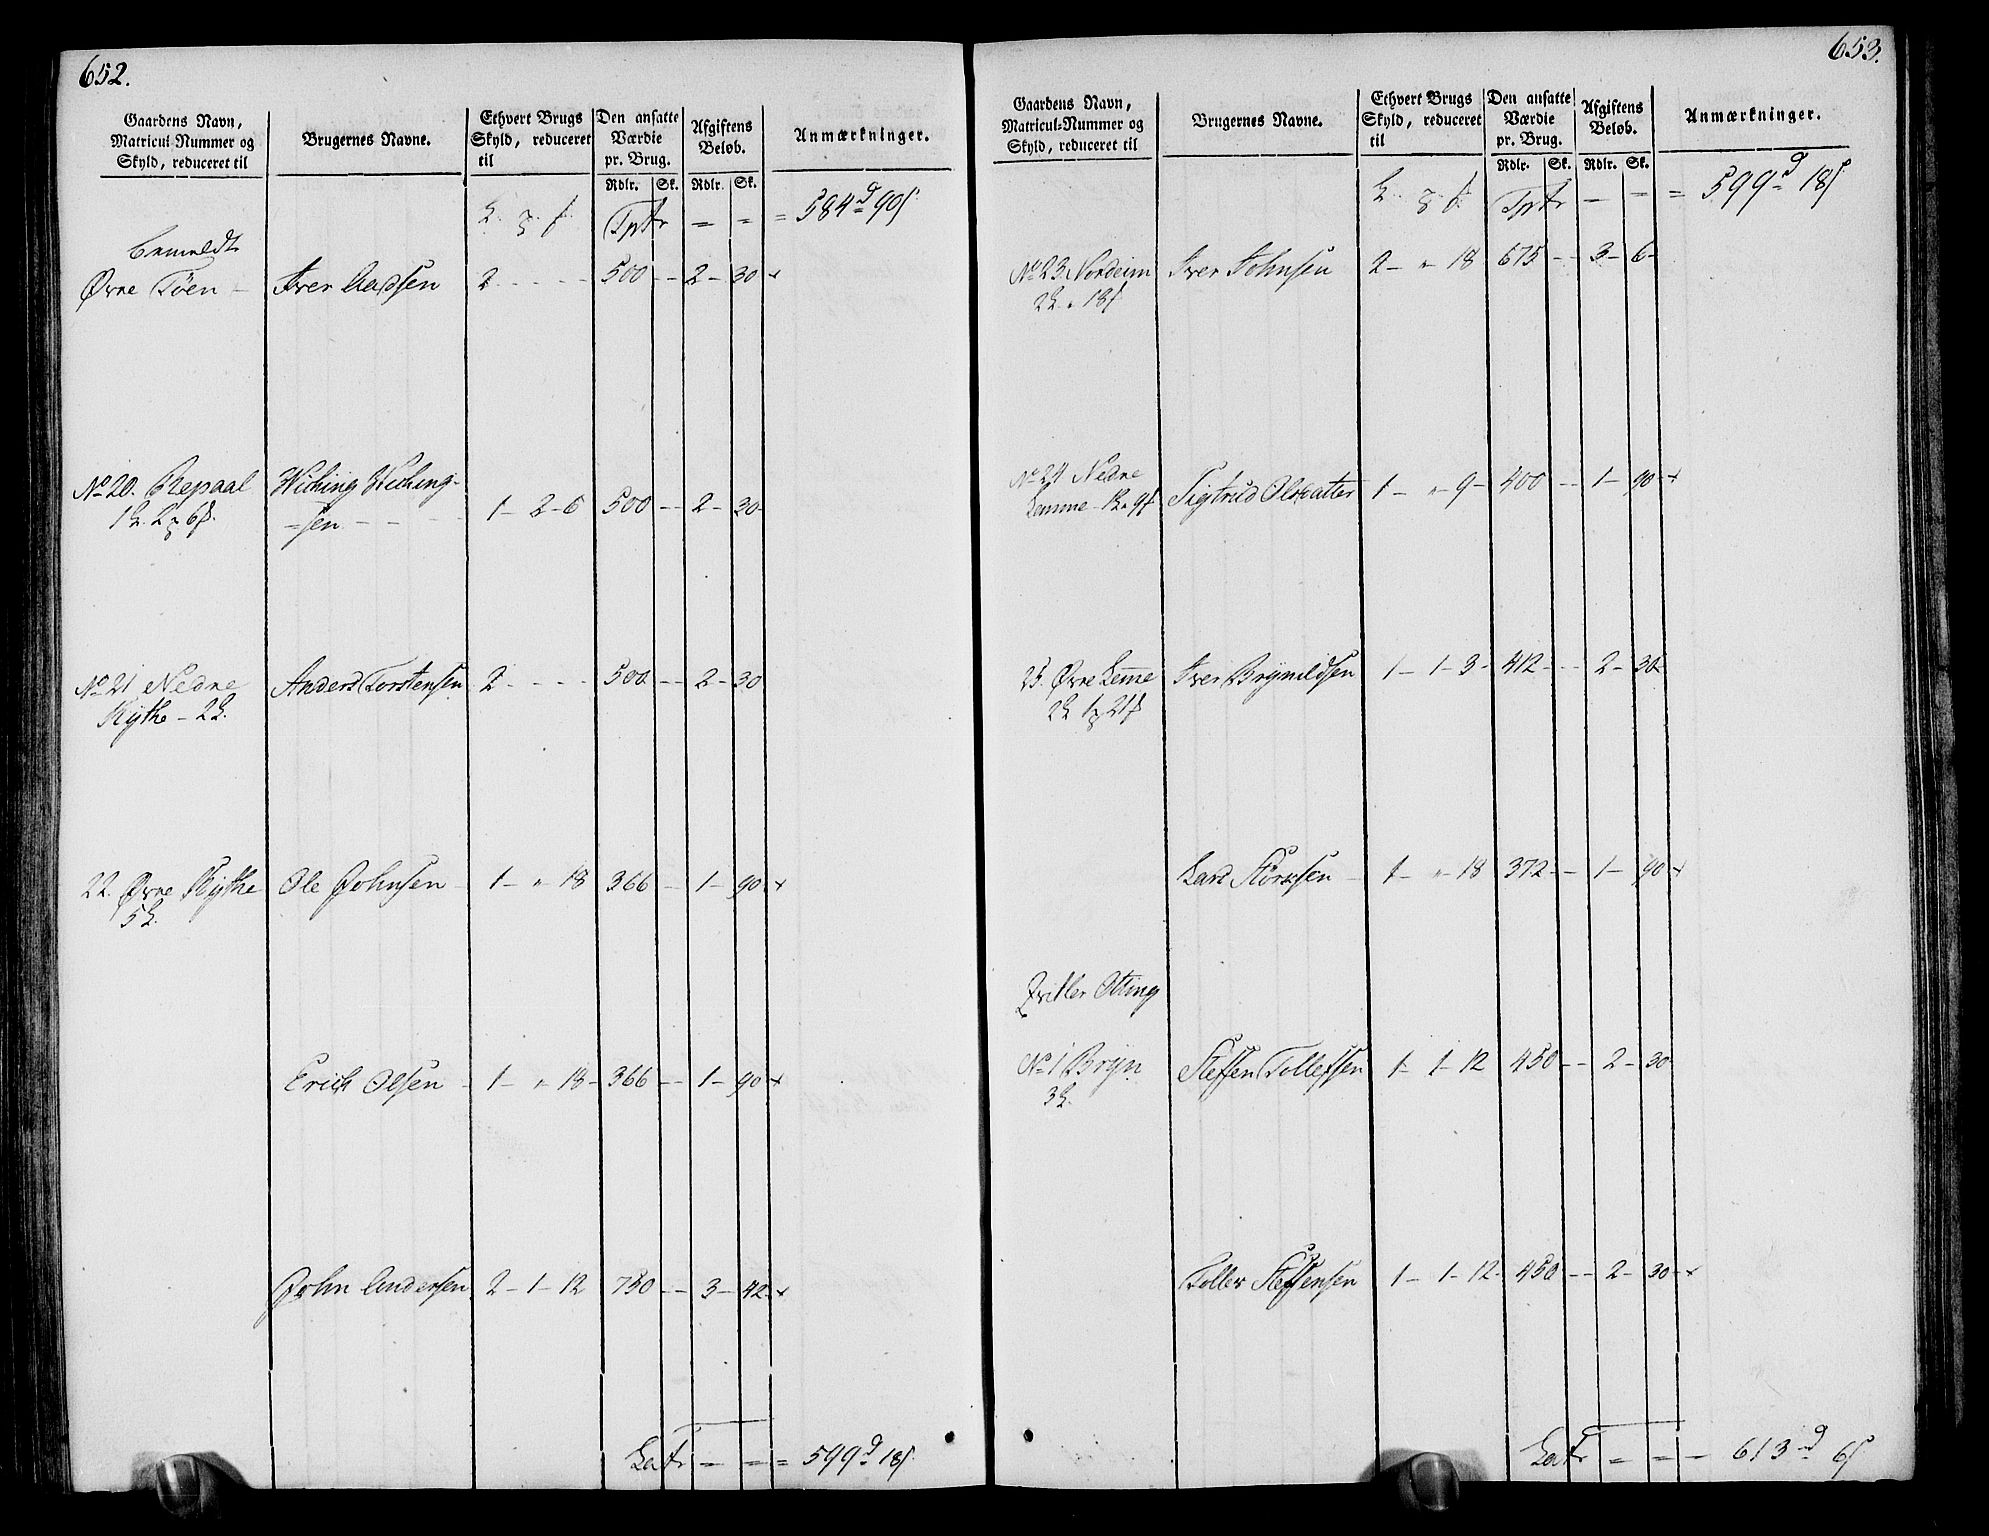 652.
Gaardens Navn, Matricul-Nummer og Skyld, reduceret til
Brugernes Navne.
Ethvert Brugs Skyld, reduceret til
Den ansatte Værdie pr. Brug.
Afgiftens Beløb.
Anmærkninger.
Rdlr. Sk. Rdlr. Sk.
Tptr = = = 584 d 90 ſ
bemeldte
Øvre Tøen – Iver Aadsen 2 - - - - 500 - - 2 - 30 +
No 20. Repaal Wiching Wiching-
1 2. 2 6 ſ. -sen - - - 1 - 2 - 6 500 - - 2 - 30
No 21 Nedre Anders Torstensen 2 - - - - 500 - - 2 - 30
Kythe - 2
22. Øvre Kythe Ole Johnsen - 1 - " 18 366 - 1 - 90 +
5
Erich Olsen - 1 - " 18 - 366 - - 1 - 90 +
John Andersen 2 - 1 - 12 750 - - 3 - 42 - +
Latr = = = 599 d 18 ſ
653.
Gaardens Navn, Matricul-Nummer og Skyld, reduceret til
Brugernes Navne.
Ethvert Brugs Skyld, reduceret til
Den ansatte Værdie pr. Brug.
Afgiftens Beløb.
Anmærkninger.
Rdlr. Sk. Rdlr. Sk.
Tptr - - = 599 d 18 ſ
No 23. Nordeim Iver Johnsen 2 - " 18 675 - - 3 - 6 -
2 " 18 ſ
No 24 Nedre
Lemme - 1 " 9 ſ Sigtrud Olsdatter 1 - " 9 - 400 - - 1 - 90 +
25. Øvre Lemme Iver Brynildsen 1 - 1 - 3 - 412 - - 2 - 30
2 1 21 ſ
Lars 1 - " 18 372 - - 1 - 90 +
Otting
No 1 Bryn Steffen Tollefsen 1 - 1 - 12 450 - - 2 - 30
3
Tollev Steffensen 1 - 1 - 12 - 450 - - 2 - 30 - +
Latr = = - 613 d 6 ſ